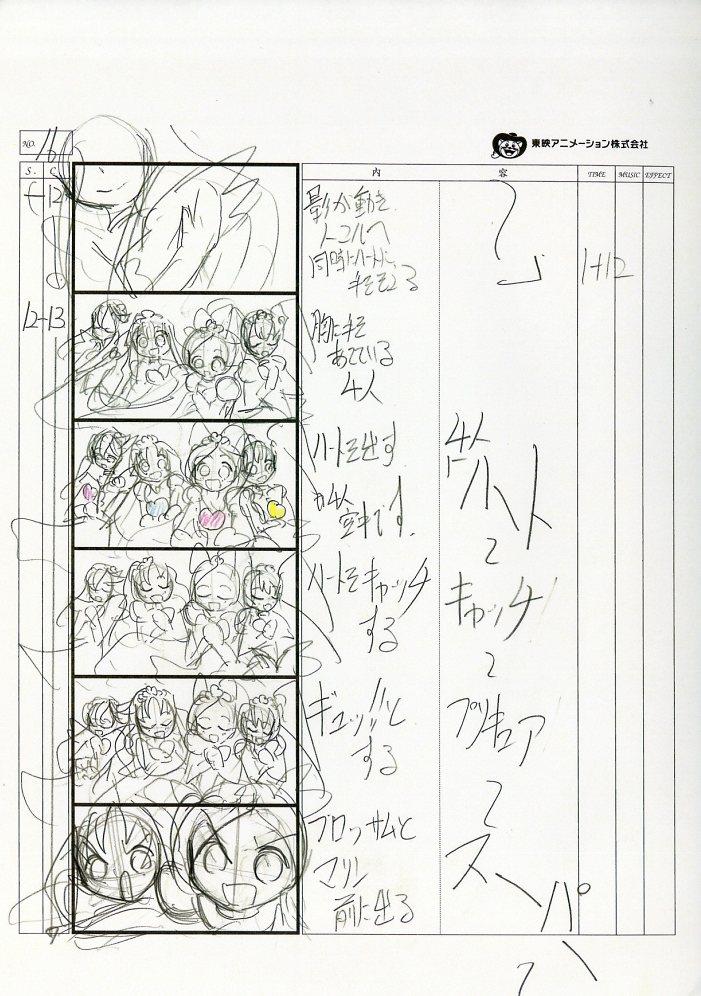 東映アニメーション株式会社
NO. 16
S. C. 内 容 TIME MUSIC EFFECT
12
影が動き
1+12
12-13
胸に手を
あてている
4人
ハートを出す
4人
ハート
〜
ハートをキャッチ
する
キャッチ!
〜
ギュッ!!と
する
プリキュア!
〜
ブロッサムと
マリン
前に出る
スーパー